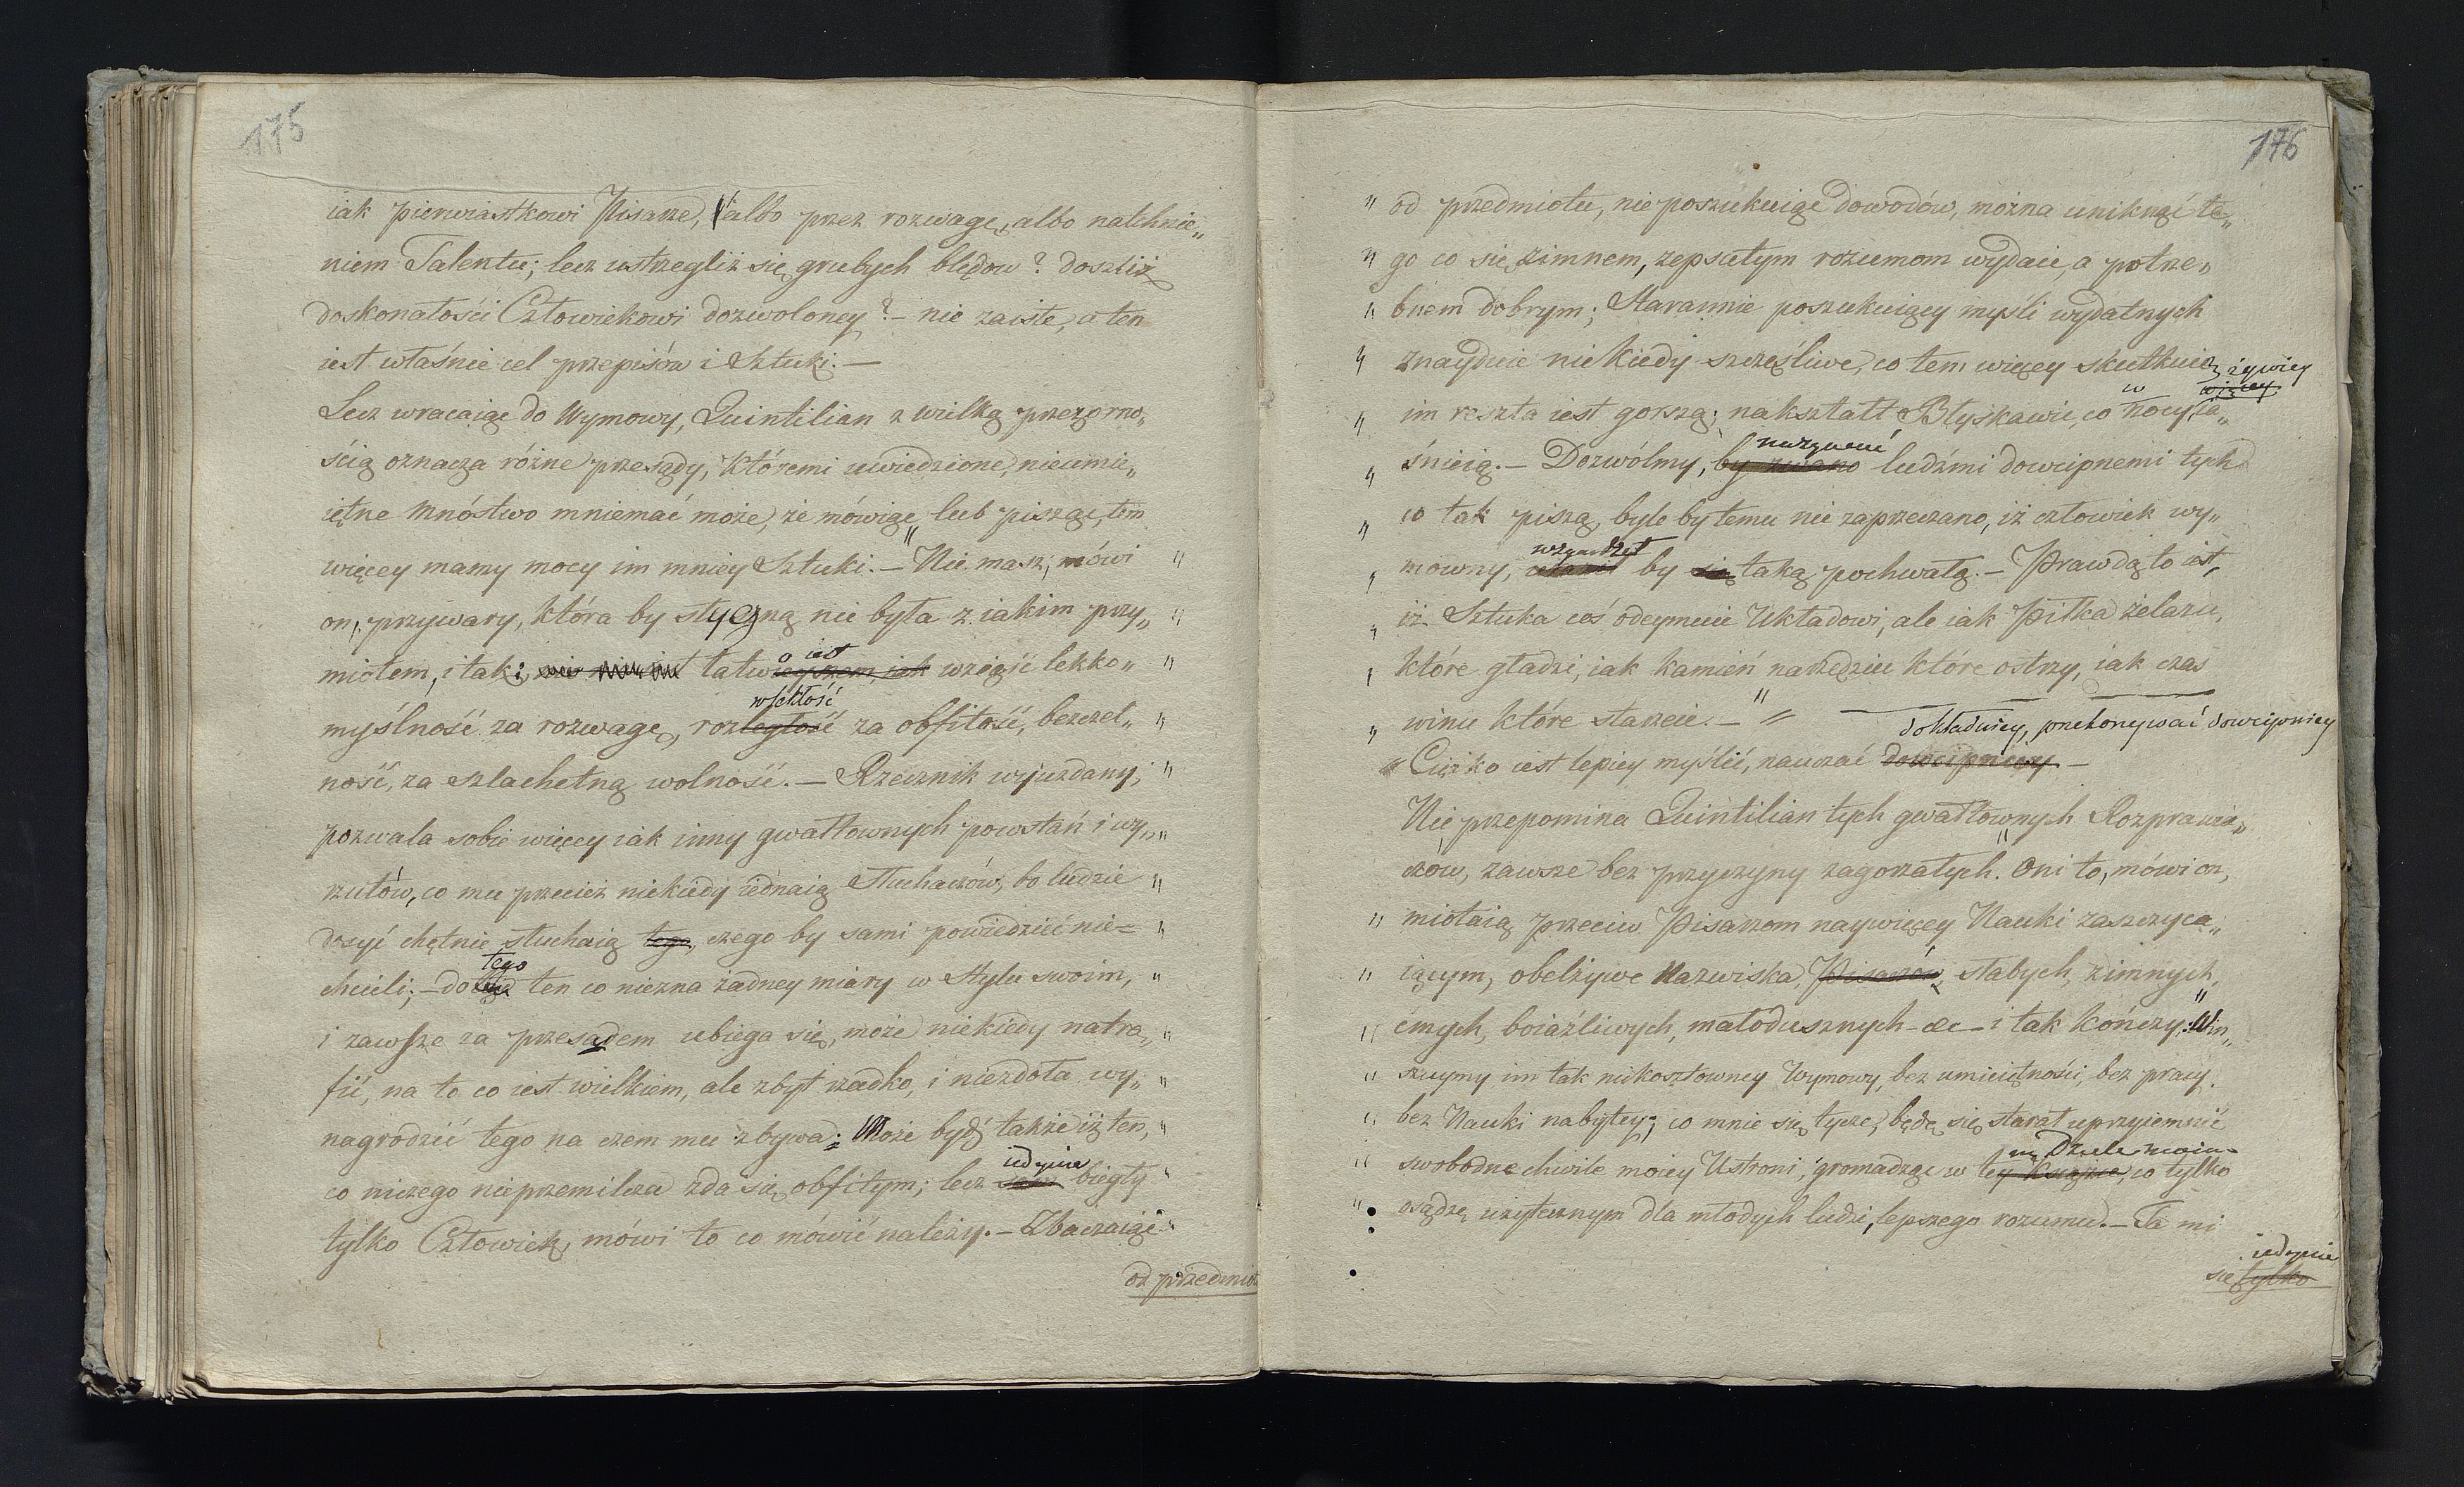 175
iak pierwiastkowi Pisarze, albo przez rozwagę, albo natchnie„
niem Talentu; lecz ustrzegliż się grubych błędow? doszliż
doskonałości Człowiekowi dozwoloney? – nie zaiste, a ten
iest właśnie cel przepisów i Sztuki. —
Lecz wracaiąc do Wymowy, Quintilian z wielką przezorno„
ścią oznacza różne przesądy, któremi uwiedzione, nieumie„
iętne mnóstwo mniemać może, że mówiąc, lub pisząc, tem
więcey mamy mocy im mniey Sztuki. – „Nie masz, mówi „
on, przywary, która by styczną nie była z iakim przy„ „
miotem, i tak: łatwo iest wziąść lekko„ „
myślność za rozwagę, rozwlekłość za obfitość, bezczel„ „
ność, za szlachetną wolność. — Rzecznik wyuzdany, „
pozwala sobie więcey iak inny gwałtownych powstań i wy„ „
rzutów, co mu przecież niekiedy iednaią Słuchaczów, bo ludzie „
dosyć chętnie słuchaią tego, czego by sami powiedzieć nie= „
chcieli; – do tego ten co niezna żadney miary w Stylu swoim, „
i zawsze za przesadem ubiega się, może niekiedy natra„ „
fić, na to co iest wielkiem, ale zbyt rzadko, i niezdoła wy„ „
nagrodzić tego na czem mu zbywa; Może bydź także iż ten, „
co niczego nieprzemilcza zda się obfitym; lecz iedynie biegły „
tylko Człowiek, mówi to co mówić należy. – Zbaczaiąc „
od przedmio
176
„ od przedmiotu, nie poszukuiąc dowodów, można uniknąć te„
„ go co się zimnem, zepsutym rozumom wydaie, a potrze„
„ bnem dobrym; Starannie poszukuiący myśli wydatnych
„ znayduie niekiedy szczęśliwe, co tem więcey skutkuią
żywiey
więcey
„ im reszta iest gorszą; nakształt Błyskawic, co w nocy, ia„
nazywać
„ śnieią. – Dozwólmy, by zwano ludźmi dowcipnemi tych
„ co tak piszą, byle by temu nie zaprzeczano, iż człowiek wy„
wzgardził
„ mowny, by się taką pochwałą. – Prawdą to iest,
„ iż Sztuka coś odeymuie Układowi, ale iak Piłka żelazu,
„ które gładzi, iak kamień narzędziu które ostrzy, iak czas
„ winu które starzeie. – „
dokładniey, przekonywać dowcipniey
„ Ciężko iest lepiey myślić, nauczać dowcipniey –
Nie przepomina Quintilian tych gwałtownych Rozprawia„
czow, zawsze bez przyczyny zagorzałych. „Oni to, mówi on,
„ miotaią przeciw Pisarzom naywięcey Nauki zaszczyca„
„ iącym, obelżywe Nazwiska, Pisarzów słabych, zimnych,
„ cmych, boiaźliwych, małodusznych – &c – i tak kończy: „Win„
„ szuymy im tak niekosztowney Wymowy, bez umieiętności, bez pracy,
„ bez Nauki nabytey; co mnie się tycze, będę się starał uprzyiemnić
„ swobodne chwile moiey Ustroni, gromadząc w tey Książce, co tylko
„ osądzę użytecznym dla młodych ludzi, lepszego rozumu. – Ta mi
iedynie
się tylko